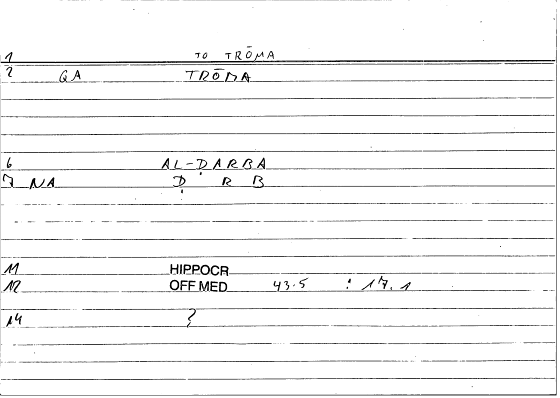 1 TO TRŌMA
2 QA TRŌMA
6 AL-ḌARBA
7 NA Ḍ R B
11 HIPPOCR
12 OFF MED 43.5 : 17.1
14 ?